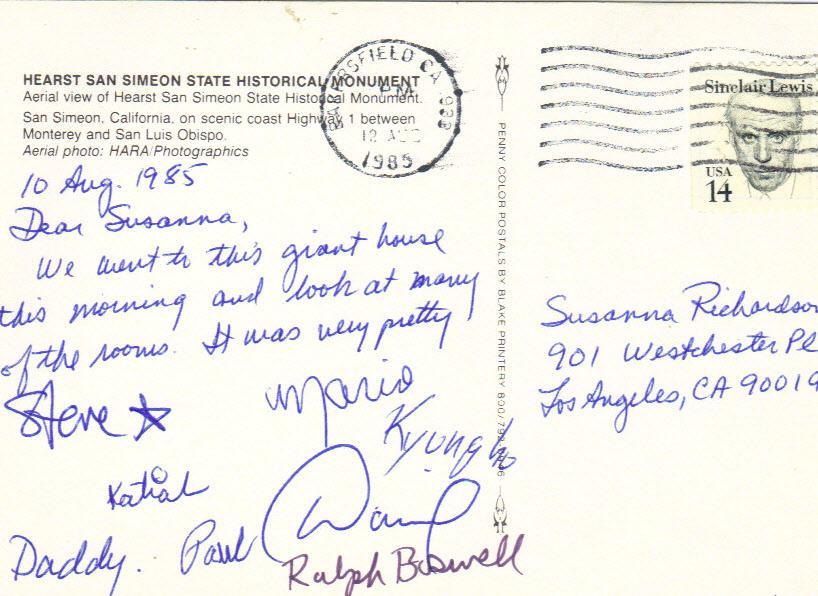 HEARST SAN SIMEON STATE HISTORICAL MONUMENT
Aerial view of Hearst San Simeon State Historical Monument.
San Simeon, California, on scenic coast Highway 1 between
Monterey and San Luis Obispo.
Aerial photo: HARA/Photographics
10 Aug. 1985
Dear Susanna,
We went to this giant house
this morning and look at many
of the rooms. It was very pretty
Steve
Mario
Kyungho
Daddy. Paul
Ralph Boswell
BAKERSFIELD CA 933
PM
12 AUG
1985
PENNY COLOR POSTALS BY BLAKE PRINTERY
Sinclair Lewis
USA
14
Susanna Richardson
901 Westchester Pl
Los Angeles, CA 90019